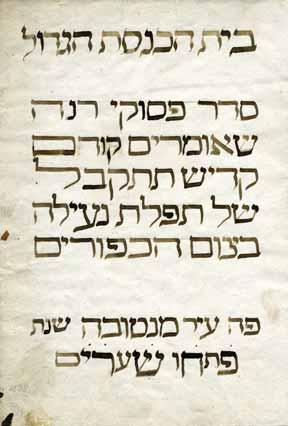 בית הכנסת הגדול
סדר פסוקי רנה
שאומרים קודם
קדיש תתקבל
של תפלת נעילה
בצום הכפורים
פה עיר מנטובה שנת
פתחו שערים